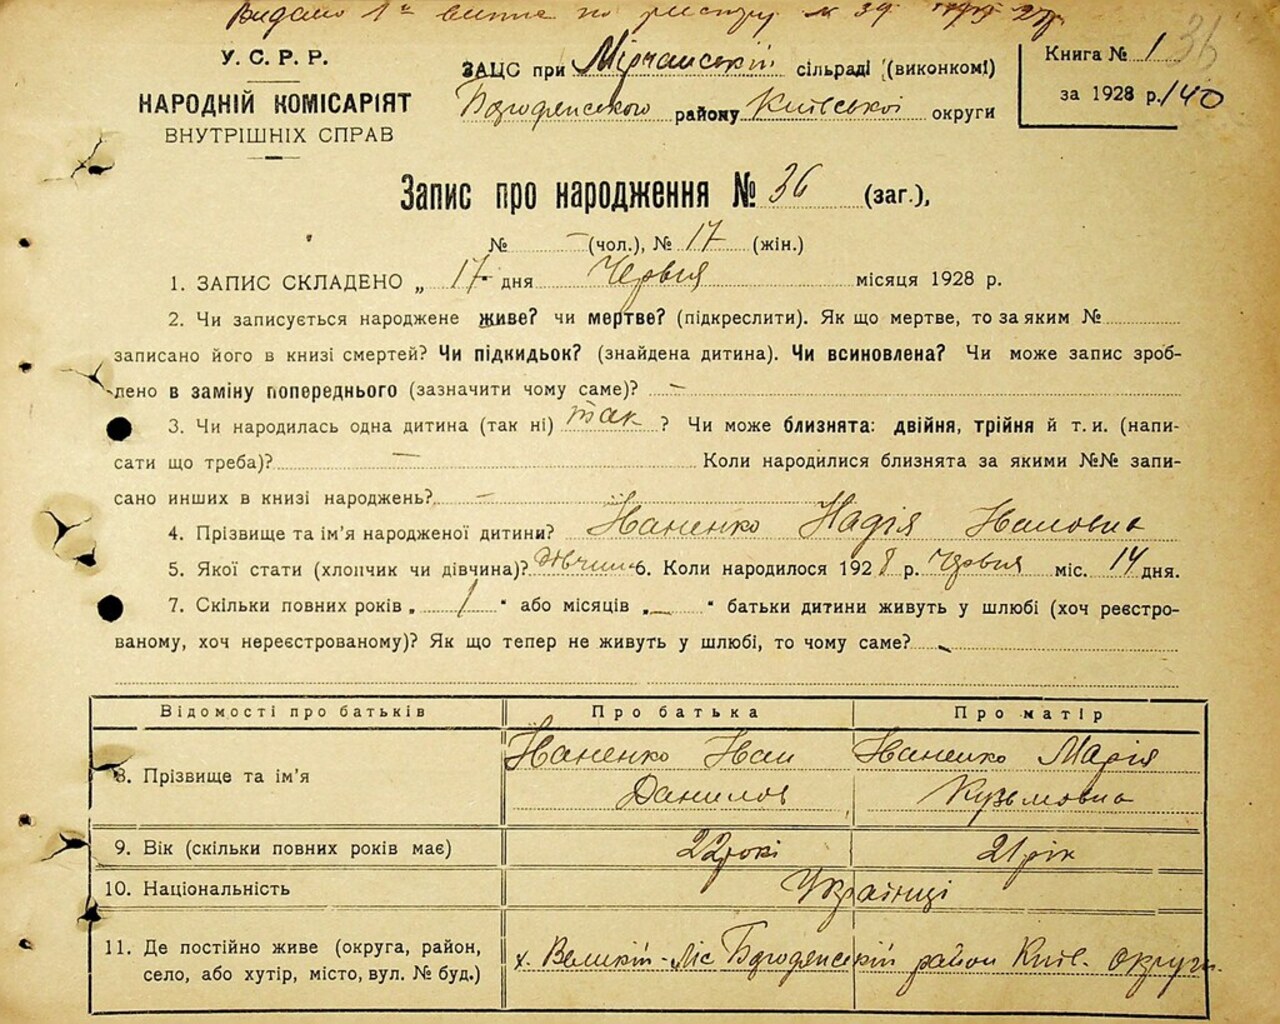 Видано 1у витяг по реєстру № 39
36
У. С. Р. Р.
НАРОДНІЙ КОМІСАРІЯТ
ВНУТРІШНІХ СПРАВ
ЗАЦС при Мірчанській сільраді (виконкомі)
Бородянського району Київської округи
Книга № 1
за 1928 р. /140
Запис про народження № 36 (заг.),
№ – (чол.), № 17 (жін.)
1. ЗАПИС СКЛАДЕНО „ 17 " дня Червня місяця 1928 р.
2. Чи записується народжене живе? чи мертве? (підкреслити). Як що мертве, то за яким №
записано його в книзі смертей? Чи підкидьок? (знайдена дитина). Чи всиновлена? Чи може запис зроб-
лено в заміну попереднього (зазначити чому саме)? –
3. Чи народилась одна дитина (так ні) так ? Чи може близнята: двійня, трійня й т. и. (напи-
сати що треба)? – Коли народилися близнята за якими №№ запи-
сано инших в книзі народжень? –
4. Прізвище та ім'я народженої дитини? Іваненко Надія Івановна
5. Якої стати (хлопчик чи дівчина)? дівчина 6. Коли народилося 1928 р. Червня міс. 14 дня.
7. Скільки повних років „ 1 " або місяців „ – " батьки дитини живуть у шлюбі (хоч реєстро-
ваному, хоч нереєстрованому)? Як що тепер не живуть у шлюбі, то чому саме? –
Відомості про батьків Про батька Про матір
8. Прізвище та ім'я Іваненко Іван Іваненко Марія
Данилов Кузьмовна
9. Вік (скільки повних років має) 22 рокі 21 рік
10. Національність Українці
11. Де постійно живе (округа, район,
село, або хутір, місто, вул. № буд.) х. Великий-Ліс Бородянський район Київ. округи.